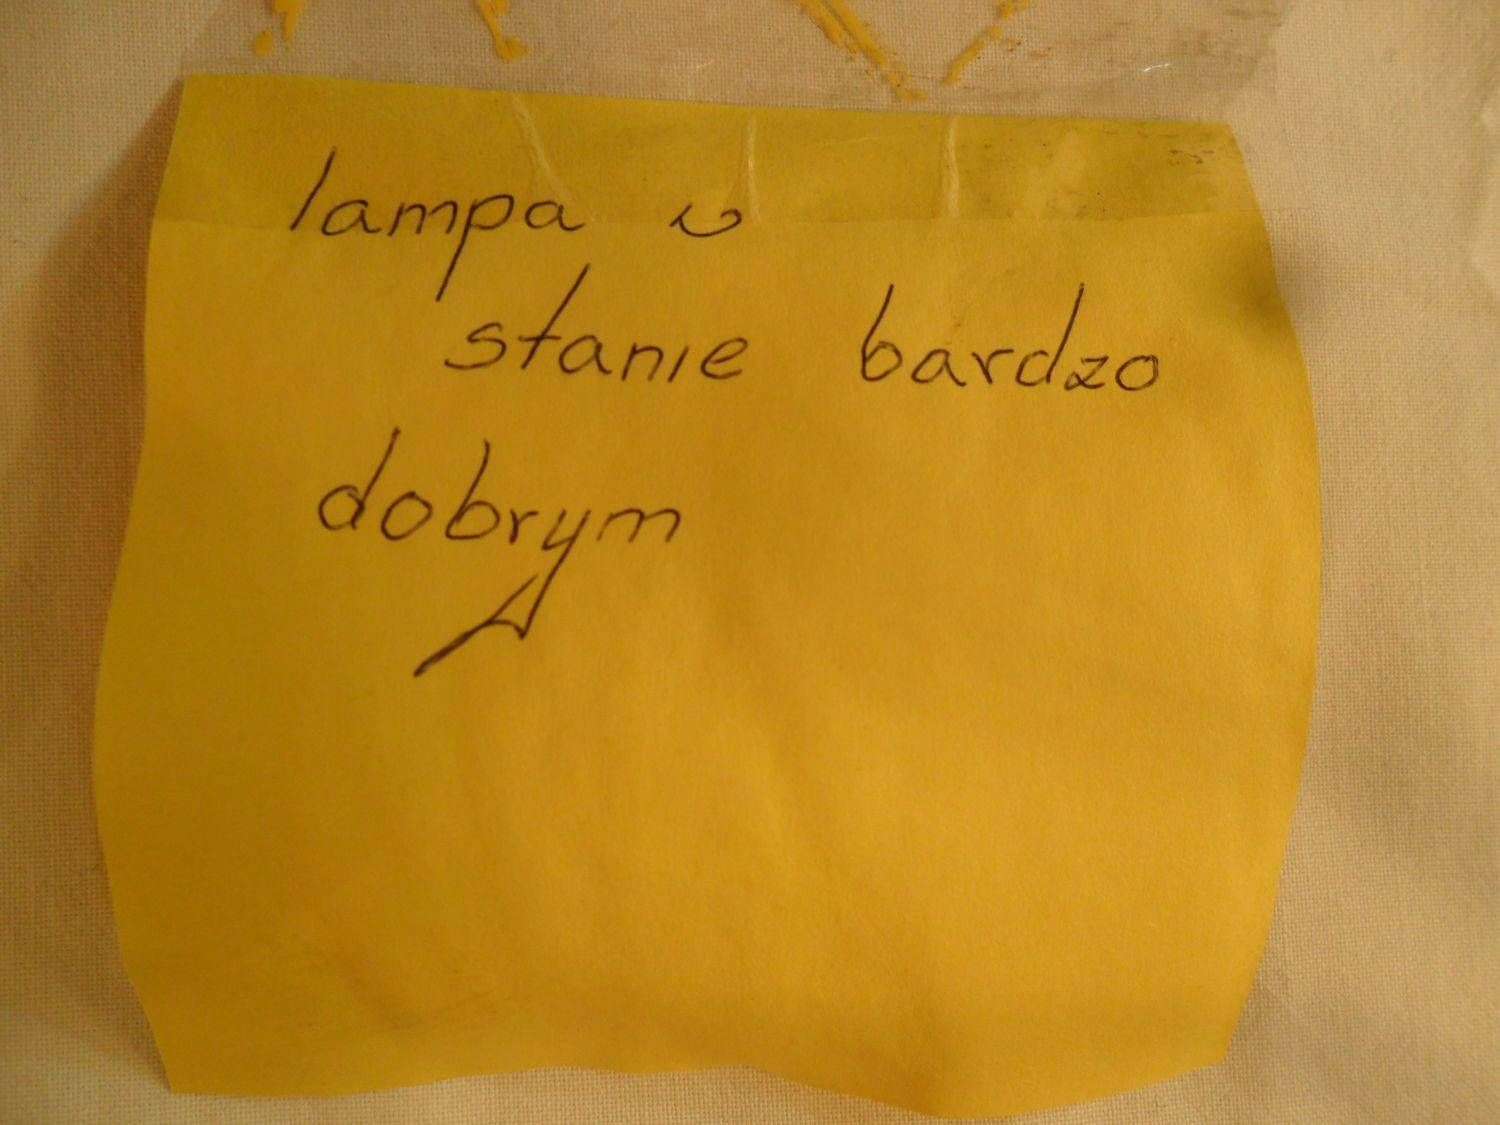 lampa w
stanie bardzo
dobrym